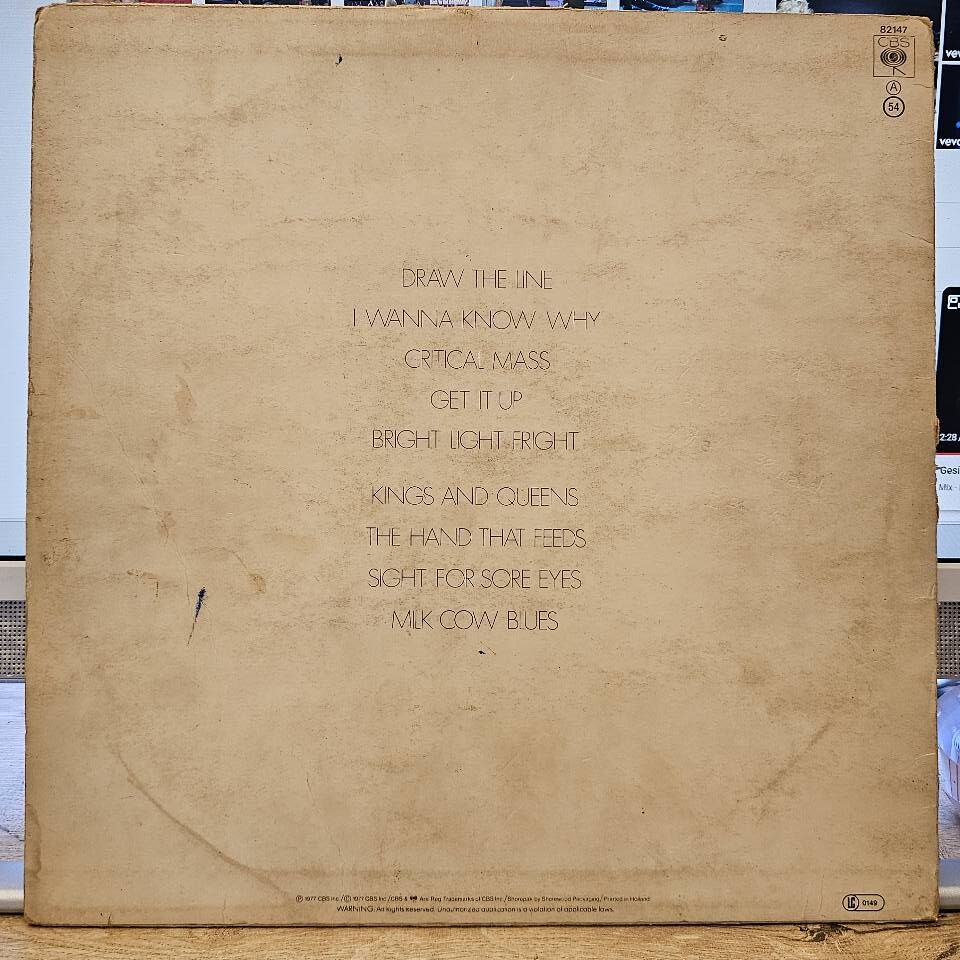 82147
CBS
A
54
DRAW THE LINE
I WANNA KNOW WHY
CRITICAL MASS
GET IT UP
BRIGHT LIGHT FRIGHT
KINGS AND QUEENS
THE HAND THAT FEEDS
SIGHT FOR SORE EYES
MILK COW BLUES
Ⓟ 1977 CBS Inc./Ⓒ 1977 CBS Inc./CBS & Are Reg. Trademarks of CBS Inc./Shorepak by Shorewood Packaging/Printed in Holland
WARNING: All rights reserved. Unauthorized duplication is a violation of applicable laws.
LC 0149
vevo
2:28 /
Gesi
Mix -